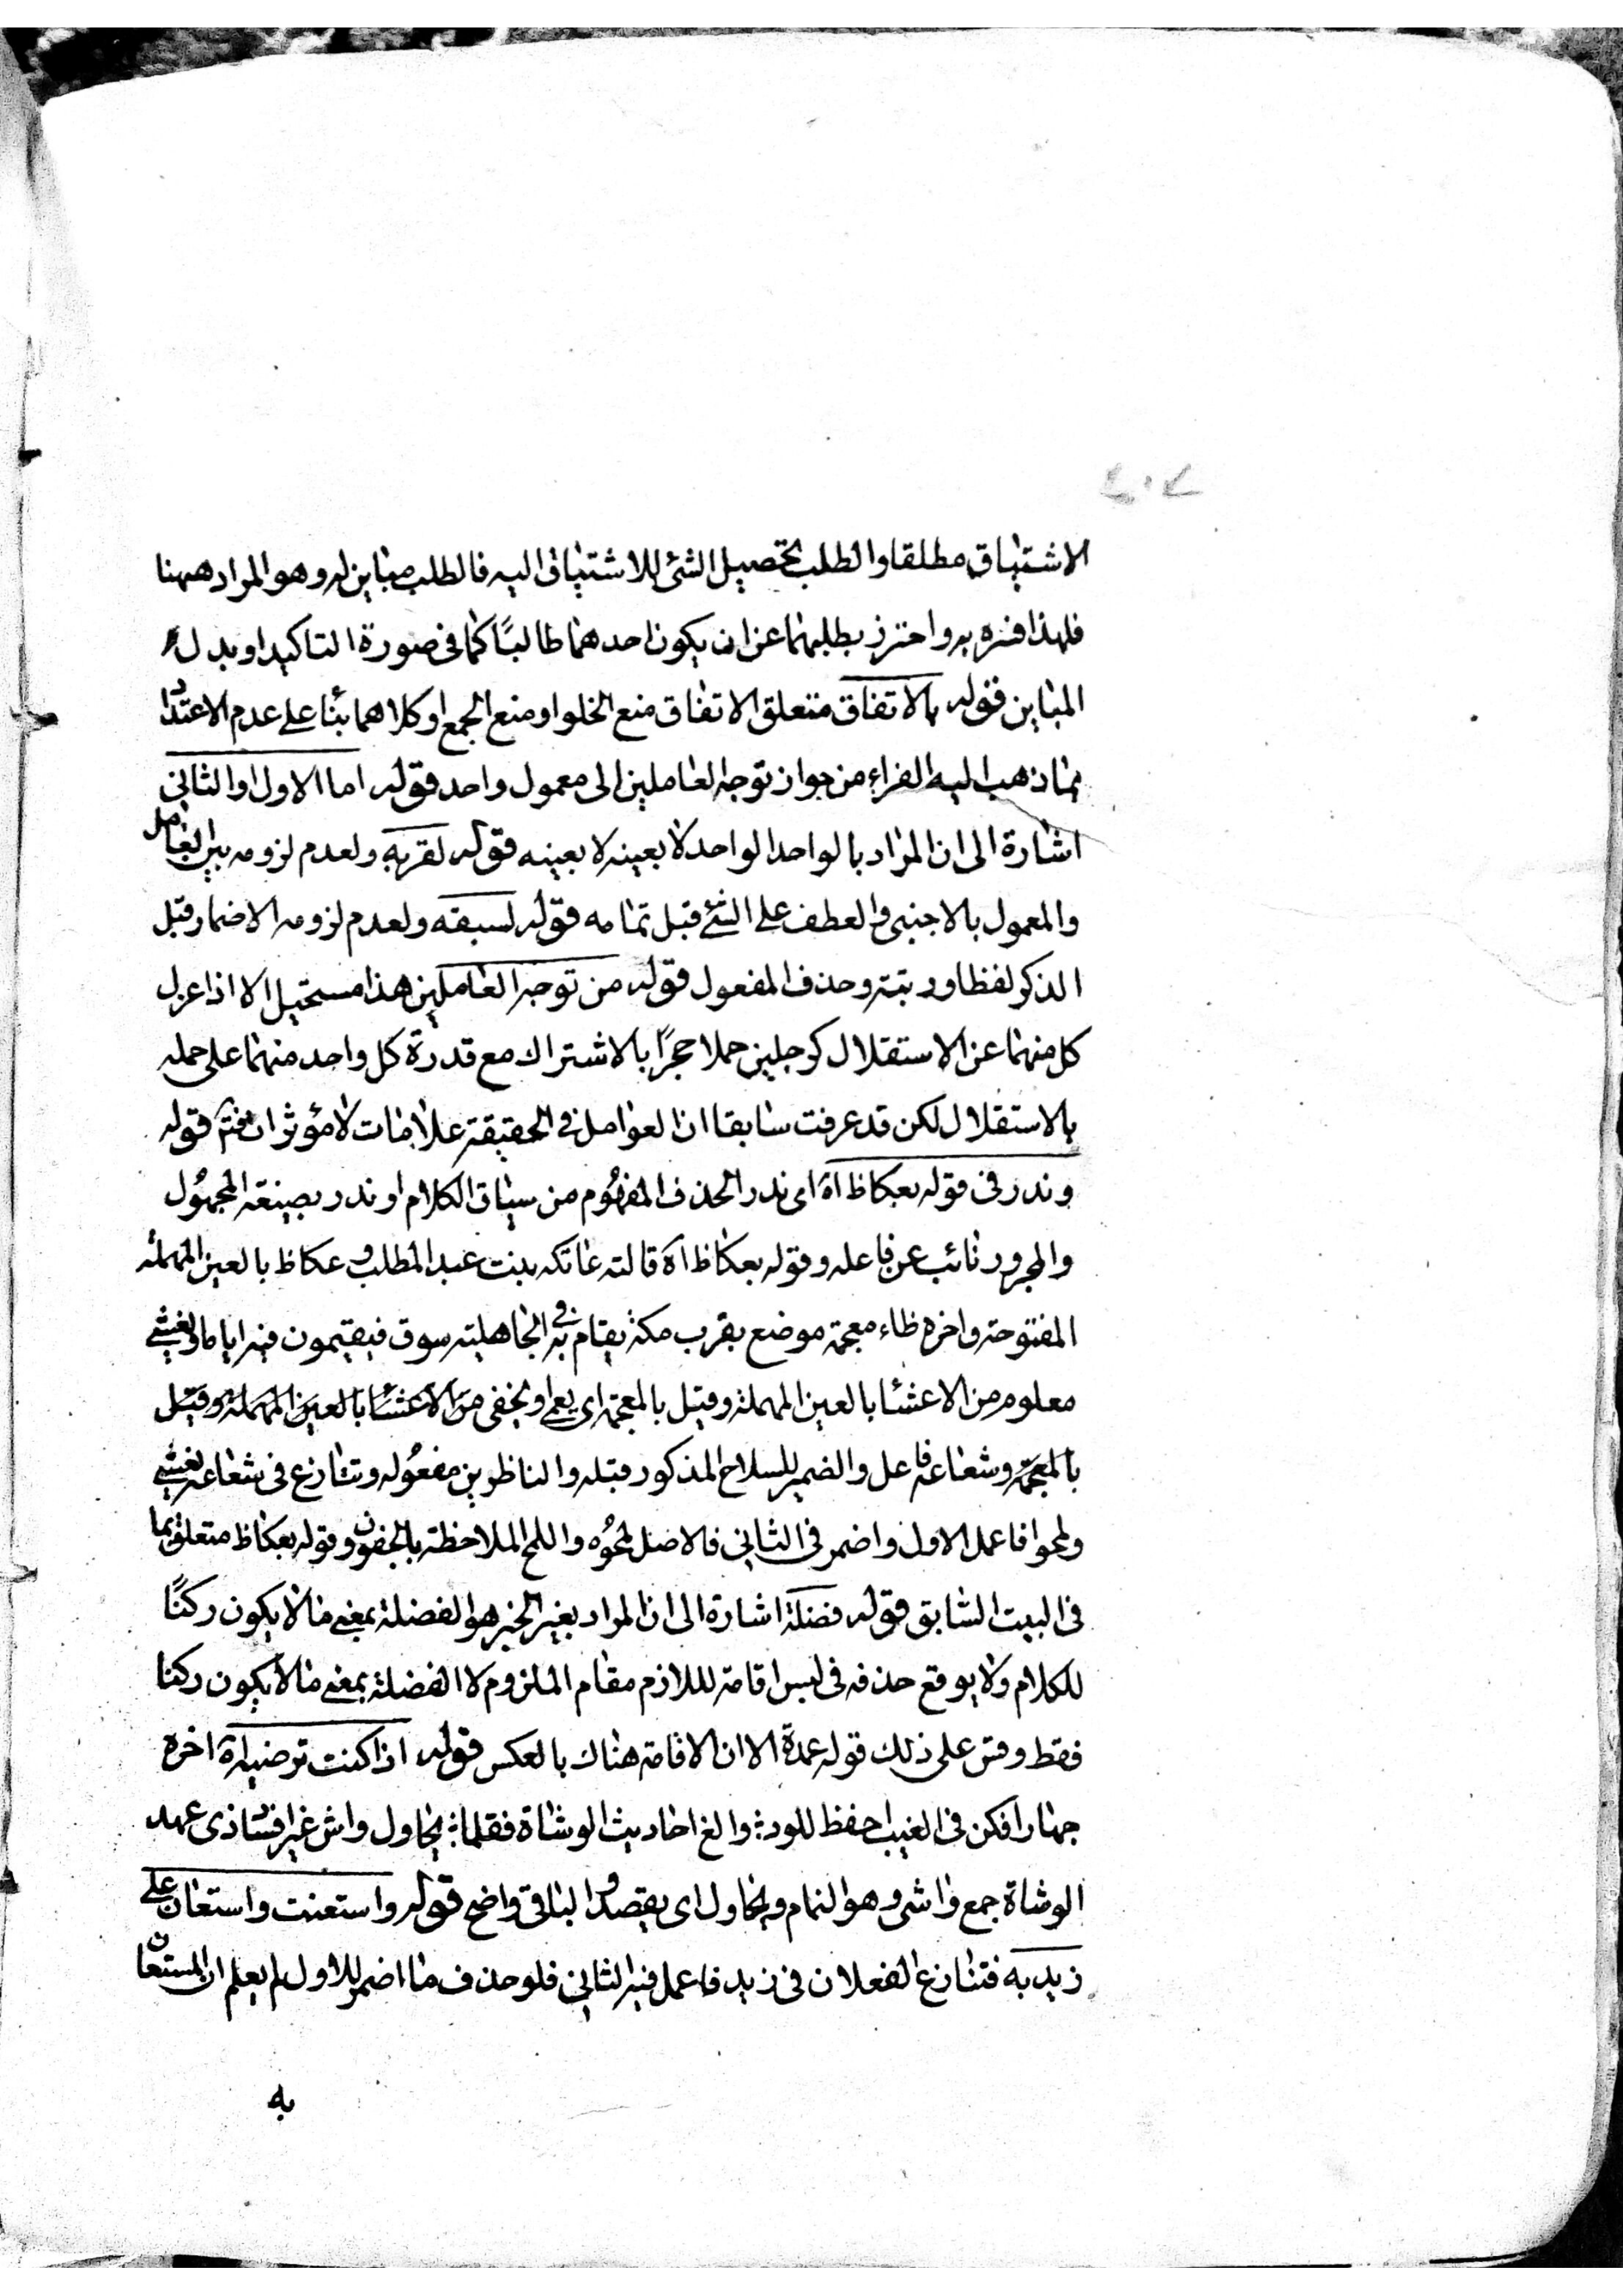 الاشتياق مطلقا والطلب تحصيل الشئ للاشتياق اليه فالطلب مباين له وهو المراد ههنا
فلهذا فسره به واحترز بطلبهما عن ان يكون احدهما طالبًا كما في صورة التاكيد او بدل
المباين قوله بالاتفاق متعلق الاتفاق منع الخلو او منع الجمع او كلاهما بناء على عدم الاعتداد
بما ذهب اليه الفراء من جواز توجه العاملين الى معمول واحد قوله اما الاول او الثاني
اشارة الى ان المراد بالواحد الواحد لا بعينه لا بعينه قوله لقربه ولعدم لزومه بين العامل
والمعمول بالاجنبى والعطف على الشئ قبل تمامه قوله لسبقه ولعدم لزومه الاضمار قبل
الذكر لفظا ورتبته وحذف المفعول قوله من توجه العاملين هذا مستحيل الا اذا عزل
كل منهما عن الاستقلال كرجلين حملا حجرًا بالاشتراك مع قدرة كل واحد منهما على حمله
بالاستقلال لكن قد عرفت سابقا ان العوامل في الحقيقة علامات لا مؤثرات قوله
وندر في قوله بعكاظ اه اى ندر الحذف المفهوم من سياق الكلام او ندر بصيغة المجهول
والمجرور نائب عن فاعله وقوله بعكاظ اه قالته عاتكه بنت عبد المطلب وعكاظ بالعين المهملة
المفتوحة واخره ظاء معجمة موضع بقرب مكة يقام به في الجاهلية سوق فيقيمون فيه اياما ويغشي
معلوم من الاعشا بالعين المهملة وقيل بالمعجمة اى يعمى او يخفى من الاعشا بالعين المهملة وقيل
بالمعجمة وشعاعه فاعل والضمير للسلاح المذكور قبله والناظرين مفعوله وتنازع في شعاعه يغشي
ولمحوا فاعمل الاول واضمر في الثاني فالاصل لمحوه واللمح الملاحظة بالجفون وقوله بعكاظ متعلق بما
في البيت السابق قوله فضلة اشارة الى ان المراد بغير الخبر هو الفضلة بمعنى ما لا يكون ركنًا
للكلام ولا يوقع حذفه في لبس اقامة لللازم مقام الملزوم لا الفضلة بمعنى ما لا يكون ركنا
فقط وقس على ذلك قوله عمدة الا ان الاقامة هناك بالعكس قوله اذا كنت ترضيه اه اخره
جهارا فكن في الغيب احفظ للود والغ احاديث الوشاة فقلما يحاول واش غير افساد ذى عهد
الوشاة جمع واشى وهو النمام ويحاول اى يقصد والباقي واضح قوله واستعنت واستعان على
زيد به فتنازع الفعلان في زيد فاعمل فيه الثاني فلو حذف ما اضمر للاول لم يعلم ان المستعان
به